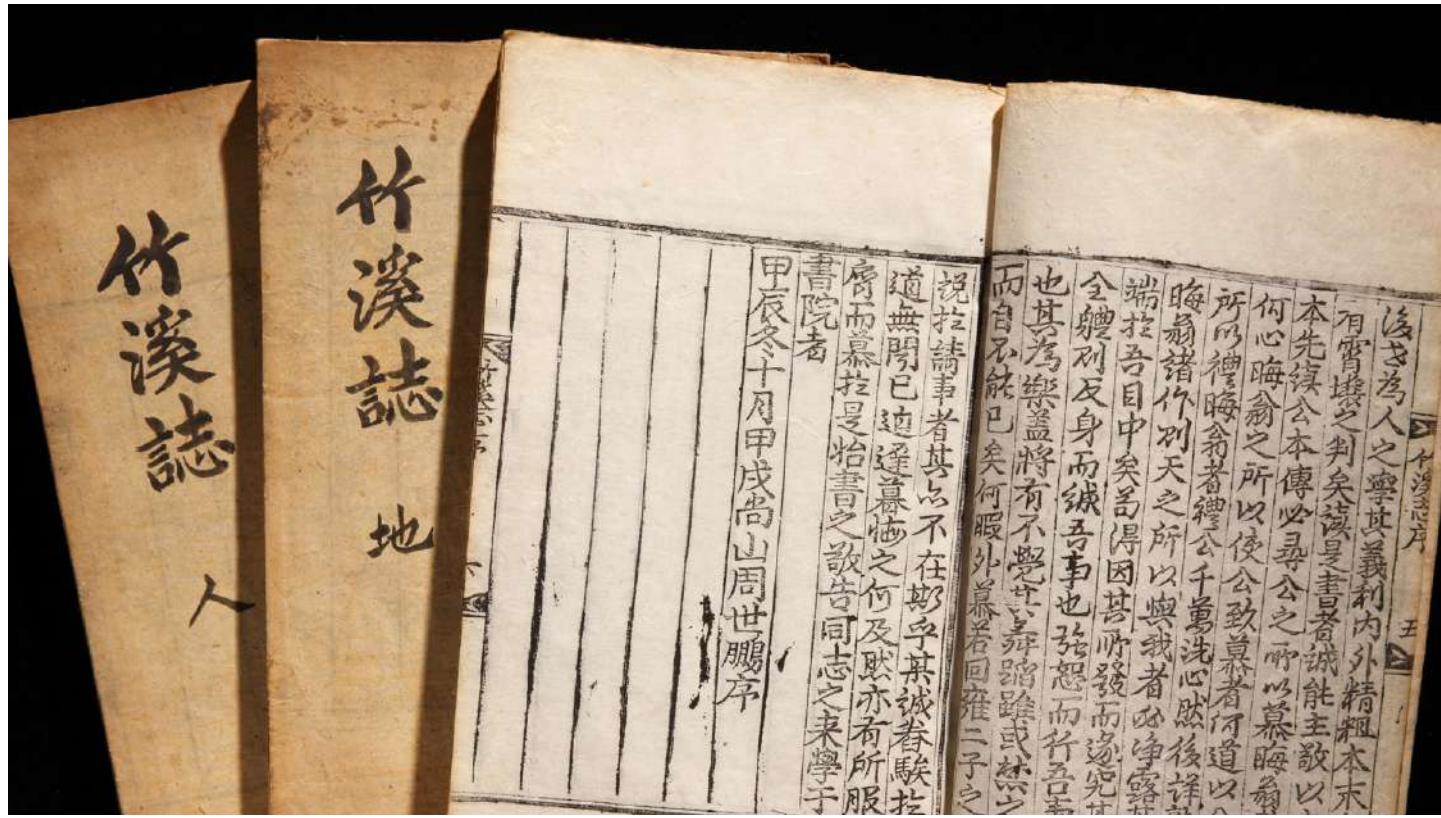 竹溪誌
人
竹溪誌
地
竹溪志序
五
後世為人之學其義利內外精粗本末
有霄壤之判矣讀是書者誠能主敬以
本先讀公本傳必尋公之所以慕晦翁
何心晦翁之所以使公致慕者何道以公
所以禮晦翁者禮公千萬洗心然後詳
晦翁諸作則天之所以與我者必淨露
端於吾目中矣苟得因其所發而遂究其
全體則反身而誠吾事也強恕而行吾事
也其為樂蓋將有不覺其舞蹈雖或禁之
而自不能已矣何暇外慕若回雍二子之
說於請事者其以不在斯乎某誠眷騃於
道無聞已迫遲暮悔之何及然亦有所服
膺而慕於是怡書之敬告同志之来學于
書院者
甲辰冬十月甲戌尚山周世鵬序